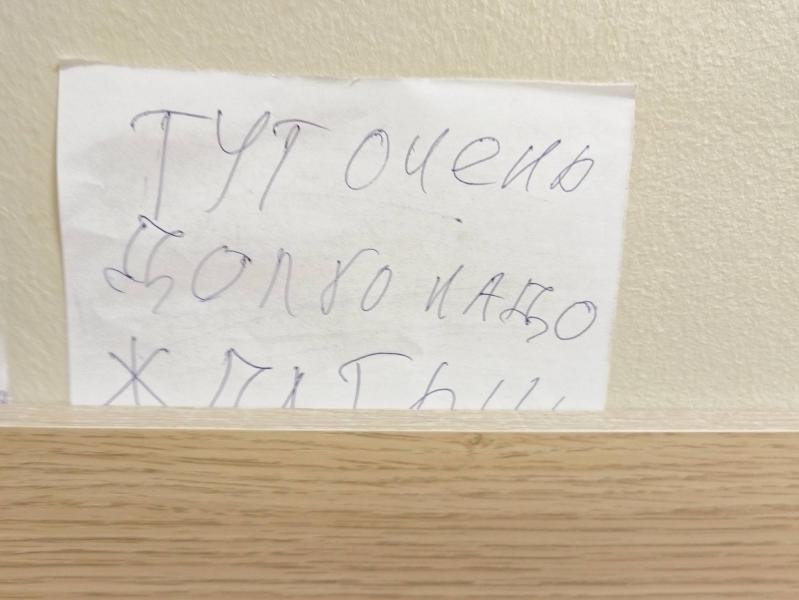 ТУТ очень
ДОЛГО НАДО
ЖДАТЬ